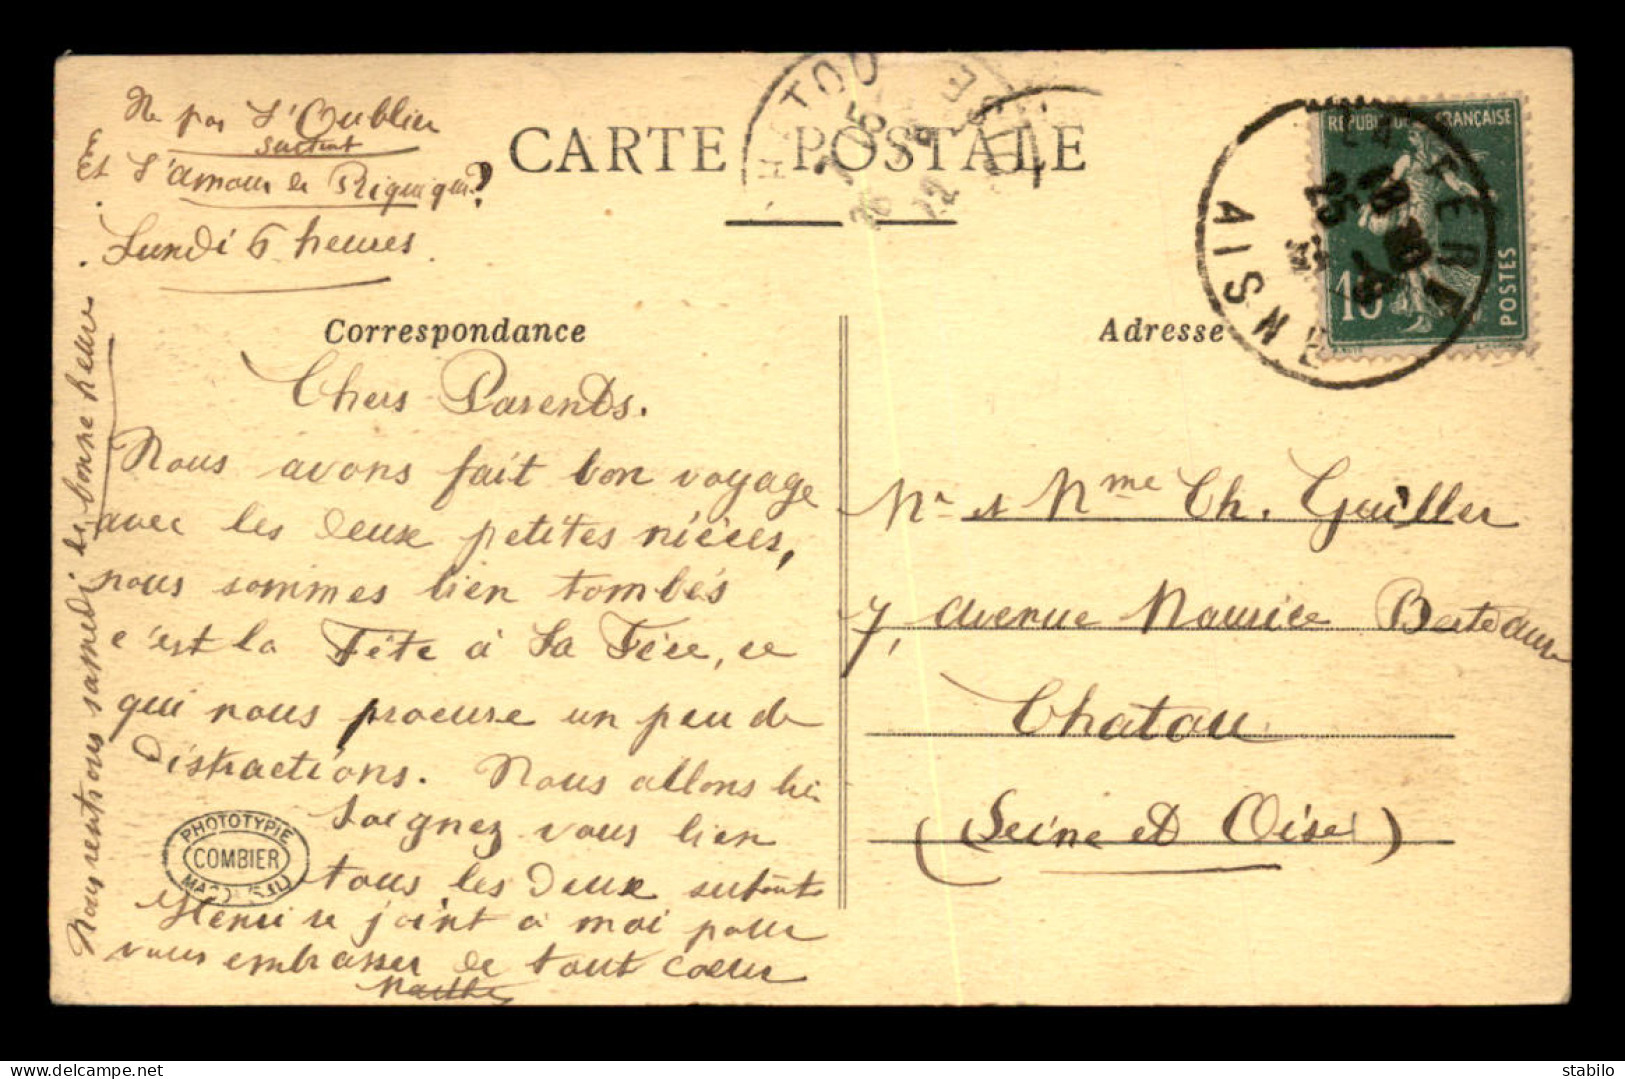 Ne pas s'Oublier
surtout
Et l'amour de Riquiqui?
Lundi 6 heures.
CARTE POSTALE
Correspondance
Adresse
RÉPUBLIQUE FRANÇAISE
10
POSTES
LA FERE
AISNE
Chers Parents.
Nous avons fait bon voyage
avec les deux petites nièces,
nous sommes bien tombés
c'est la Fête à La Fère, ce
qui nous procure un peu de
distractions. Nous allons bien
Soignez vous bien
tous les deux surtout
Henri se joint à moi pour
vous embrasser de tout coeur
Marthe
Nous rentrons samedi de bonne heure
PHOTOTYPIE
COMBIER
MACON
Mr et Mme Ch. Guiller
7, avenue Maurice Berteaux
Chatou
(Seine et Oise)
stabilo